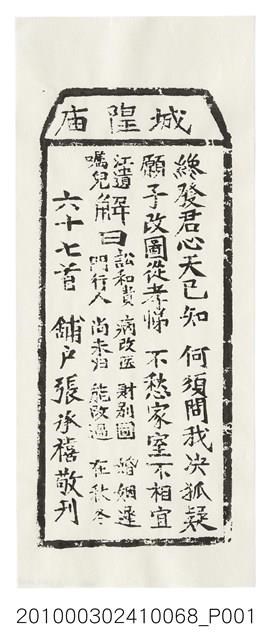 城隍庙
終發君心天已知 何須問我决狐疑
願子改圖從孝悌 不愁家室不相宜
江遺
囑兒
解曰
訟和貴 病改医 財别圖 婚姻遲
問行人 尚未归 能改過 在秋冬
六十七首 鋪戶張承禧敬刊
201000302410068_P001